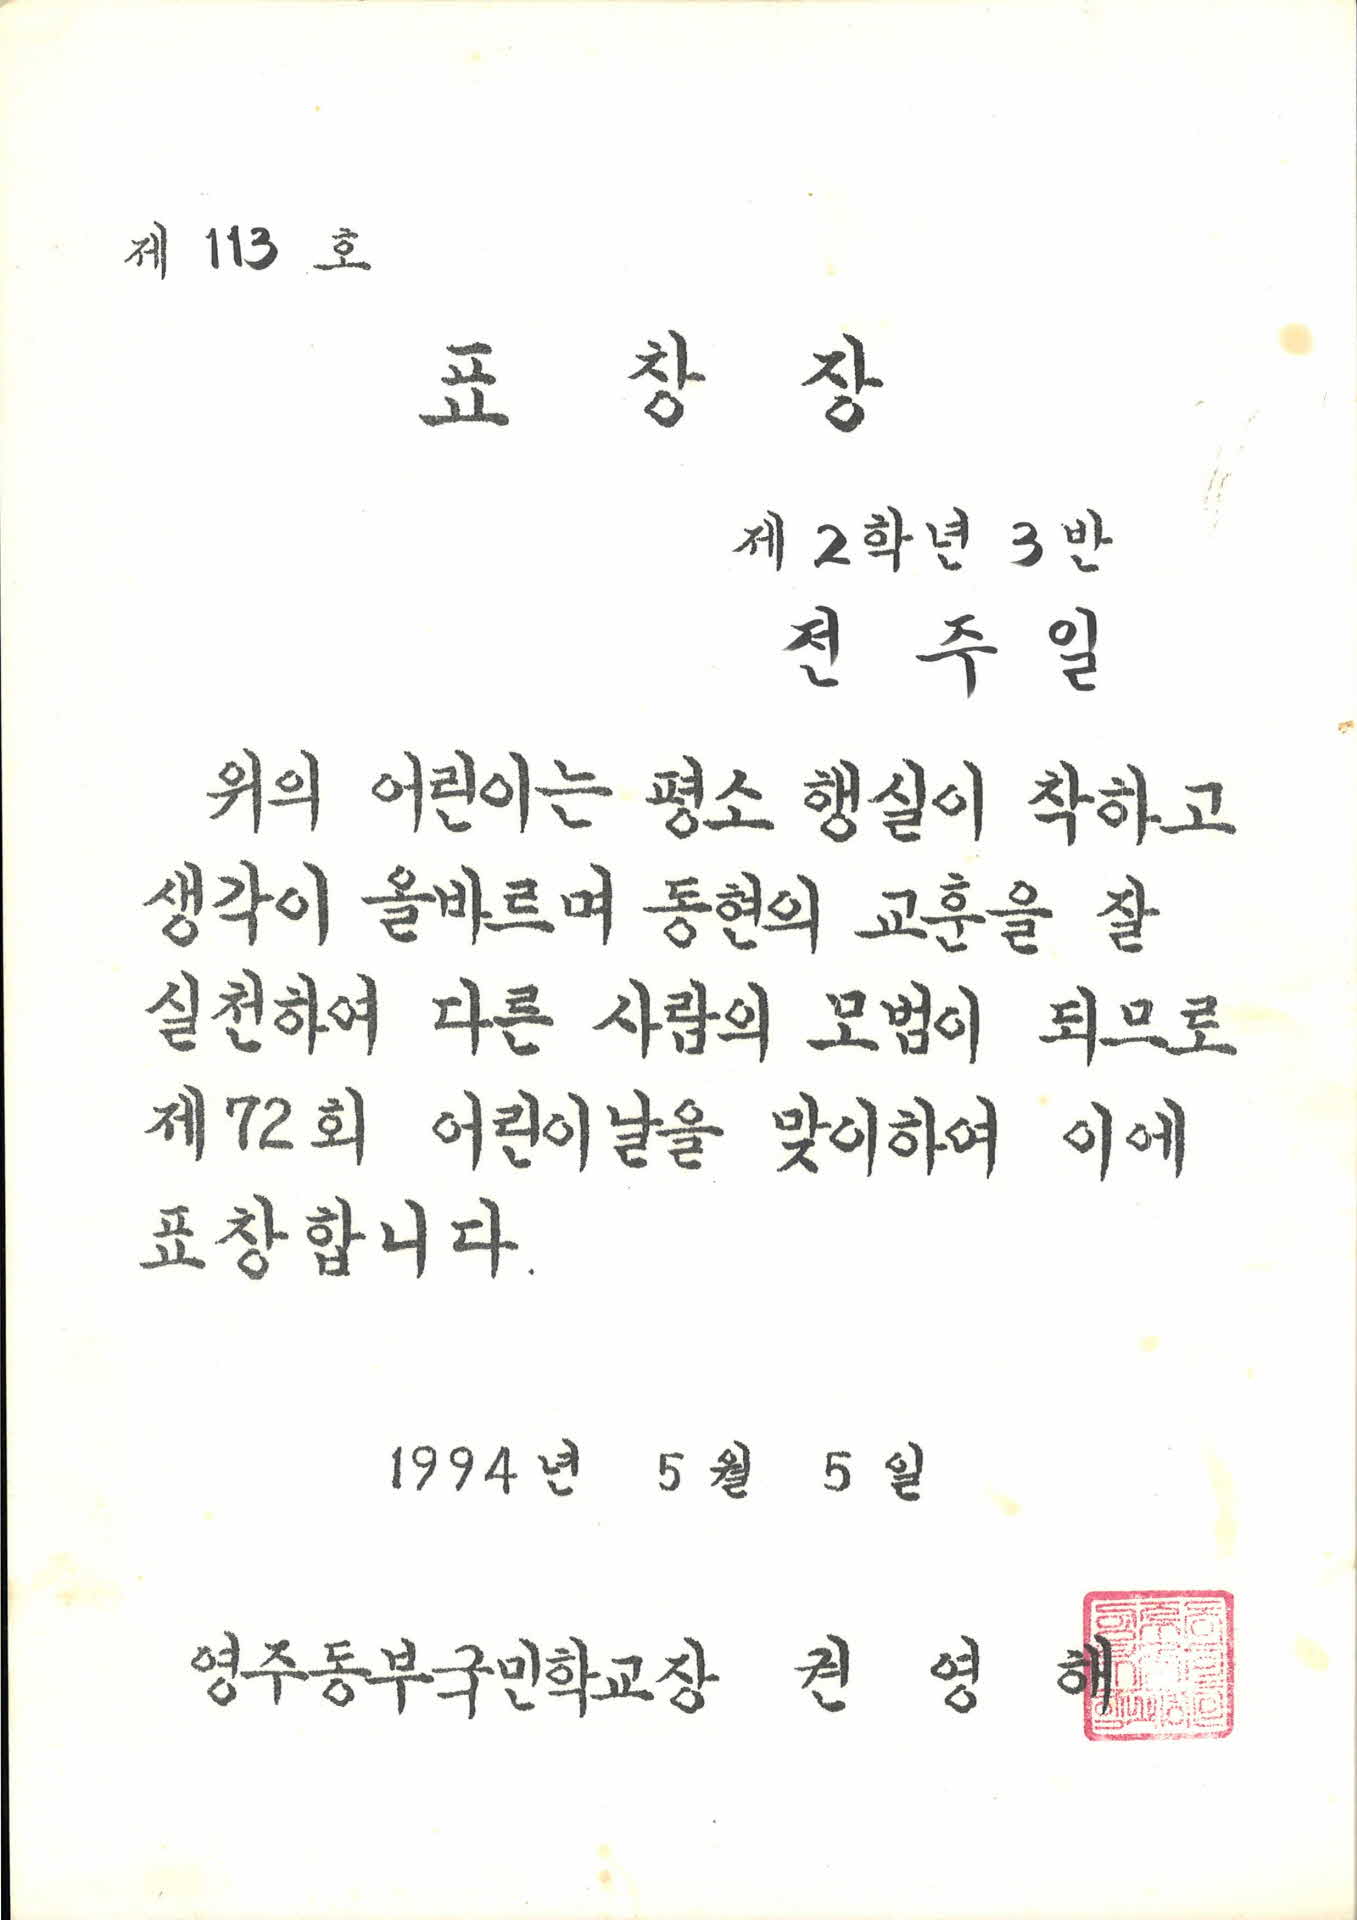 제 113 호
표 창 장
제 2 학년 3 반
전 주 일
위의 어린이는 평소 행실이 착하고
생각이 올바르며 동현의 교훈을 잘
실천하여 다른 사람의 모범이 되므로
제72회 어린이날을 맞이하여 이에
표창합니다.
1994년 5월 5일
영주동부국민학교장 권 영 해